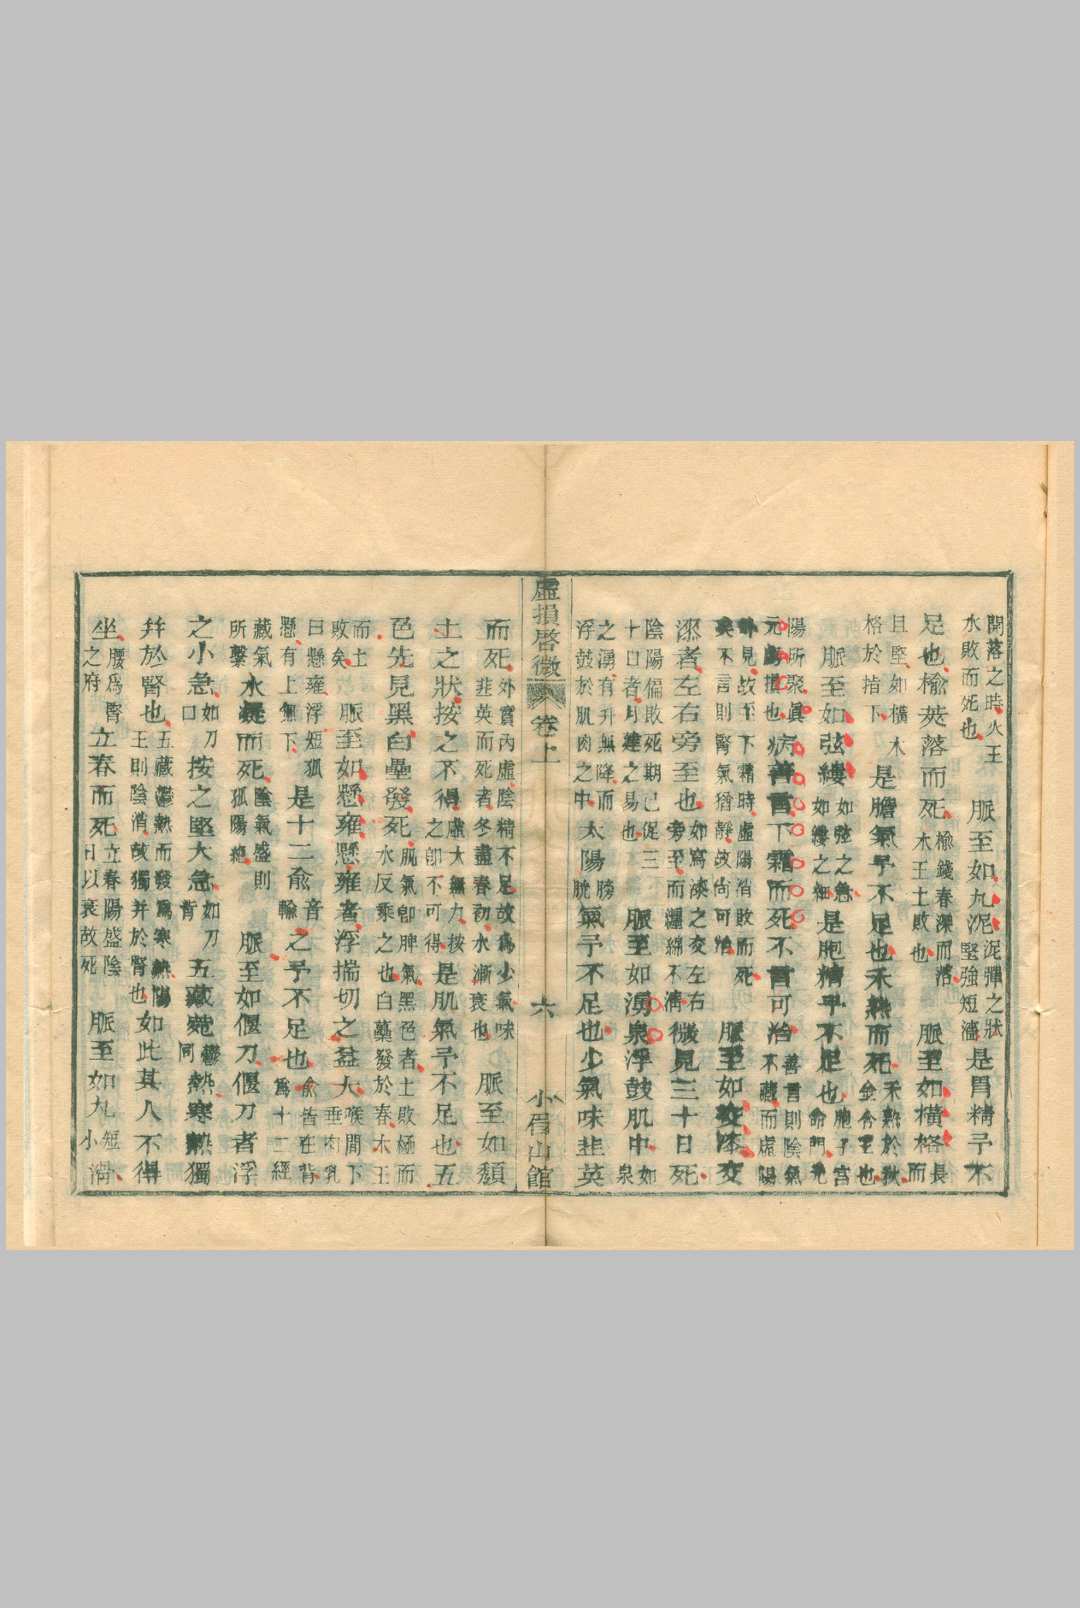 開落之時火王
水敗而死也 脈至如丸泥 泥彈之狀
堅強短濇 是胃精予不
足也榆莢落而死 榆錢春深而落
木王土敗也 脈至如橫格 長而
且堅如橫木
格於指下 是膽氣予不足也禾熟而死 禾熟於秋
金令王也
脈至如弦縷 如弦之急
如縷之細 是胞精予不足也 胞子宮
命門元
陽所聚眞
元虧損也 病善言下霜而死不言可治 善言則陰氣
不藏而虛陽
外見故至下霜時虛陽消敗而死
矣不言則腎氣猶靜故尚可治 脈至如交漆交
漆者左右旁至也 如寫漆之交左右
旁至而纏綿不清 微見三十日死
陰陽偏敗死期已促三
十日者月建之易也 脈至如湧泉浮鼓肌中 如泉
之湧有升無降而
浮鼓於肌肉之中 太陽 膀胱 氣予不足也少氣味韭英
虛損啓微 卷上 六 小眉山館
而死 外實內虛陰精不足故爲少氣味
韭英而死者冬盡春初水漸衰也 脈至如頹
土之狀按之不得 虛大無力按
之卽不可得 是肌氣予不足也五
色先見黑白壘發死 肌氣卽脾氣黑色者土敗極而
水反乘之也白藟發於春木王
而土
敗矣 脈至如懸雍懸雍者浮揣切之益大 喉間下
垂肉乳
曰懸雍浮短孤
懸有上無下 是十二俞 音輸 之予不足也 俞皆在背
爲十二經
藏氣
所繫 水凝而死 陰氣盛則
孤陽絕 脈至如偃刀偃刀者浮
之小急 如刀
口 按之堅大急 如刀
背 五藏菀 鬱同 熱寒熱獨
幷於腎也 五藏鬱熱而發爲寒熱陽
王則陰消故獨并於腎也 如此其人不得
坐 腰爲腎
之府 立春而死 立春陽盛陰
日以衰故死 脈至如丸 短小 滑